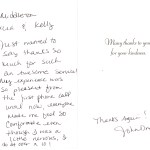 Middleton
& Kelly
Just wanted to
say thanks so
much for such
an awesome service!
My experience was
so pleasant from
the first phone call
until now, everyone
made me feel so
comfortable even
though I was a
little nervous, I
Many thanks to you
for your kindness.
Thanks Again!